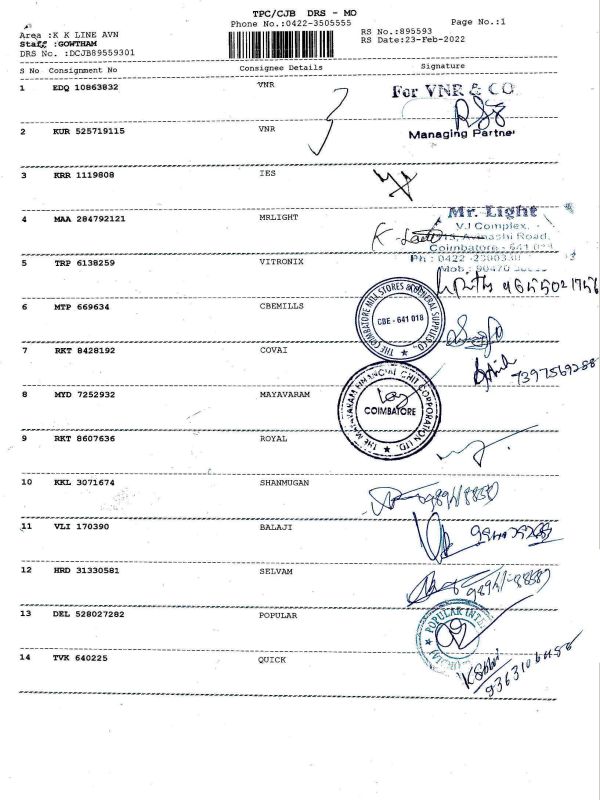 TPC/CJB DRS - MO
Phone No.:0422-3505555
Page No.:1
Area :K K LINE AVN
Staff :GOWTHAM
DRS No. :DCJB89559301
RS No.:895593
RS Date:23-Feb-2022
S No Consignment No Consignee Details Signature
1 EDQ 10863832 VNR
For VNR & CO
Managing Partner
2 KUR 525719115 VNR
3 KRR 1119808 IES
4 MAA 284792121 MRLIGHT
Mr. Light
V.J Complex,
Avinashi Road,
Coimbatore - 641 018
Ph : 0422
Mob :
5 TRP 6138259 VITRONIX
6 MTP 669634 CBEMILLS
THE COIMBATORE MILL STORES & GENERAL SUPPLIES CO.,
CBE - 641 018
7 RKT 8428192 COVAI
7397569288
8 MYD 7252932 MAYAVARAM
THE MAYAVARAM FINANCIAL CHIT CORPORATION LTD.
COIMBATORE
9 RKT 8607636 ROYAL
10 KKL 3071674 SHANMUGAN
11 VLI 170390 BALAJI
12 HRD 31330581 SELVAM
13 DEL 528027282 POPULAR
POPULAR
14 TVK 640225 QUICK